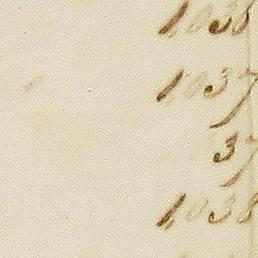 1035
1037
37
1038